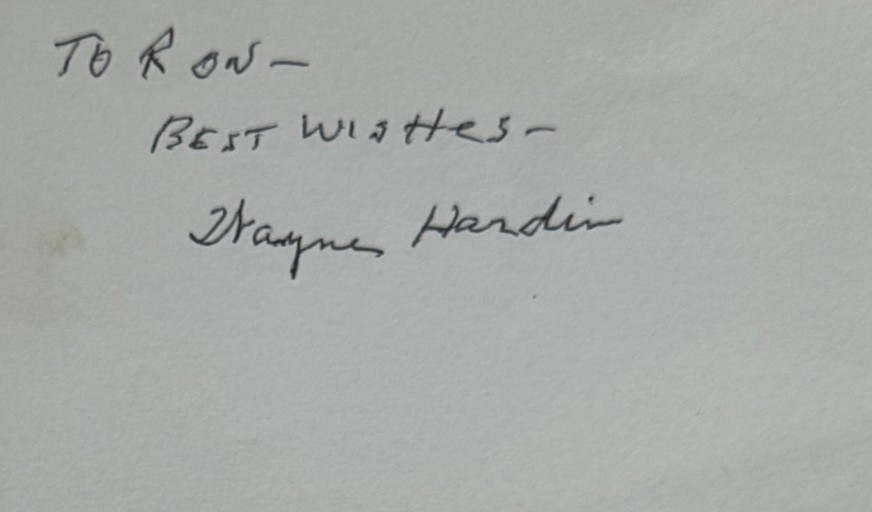 TO RON—
BEST WISHES—
Wayne Hardin